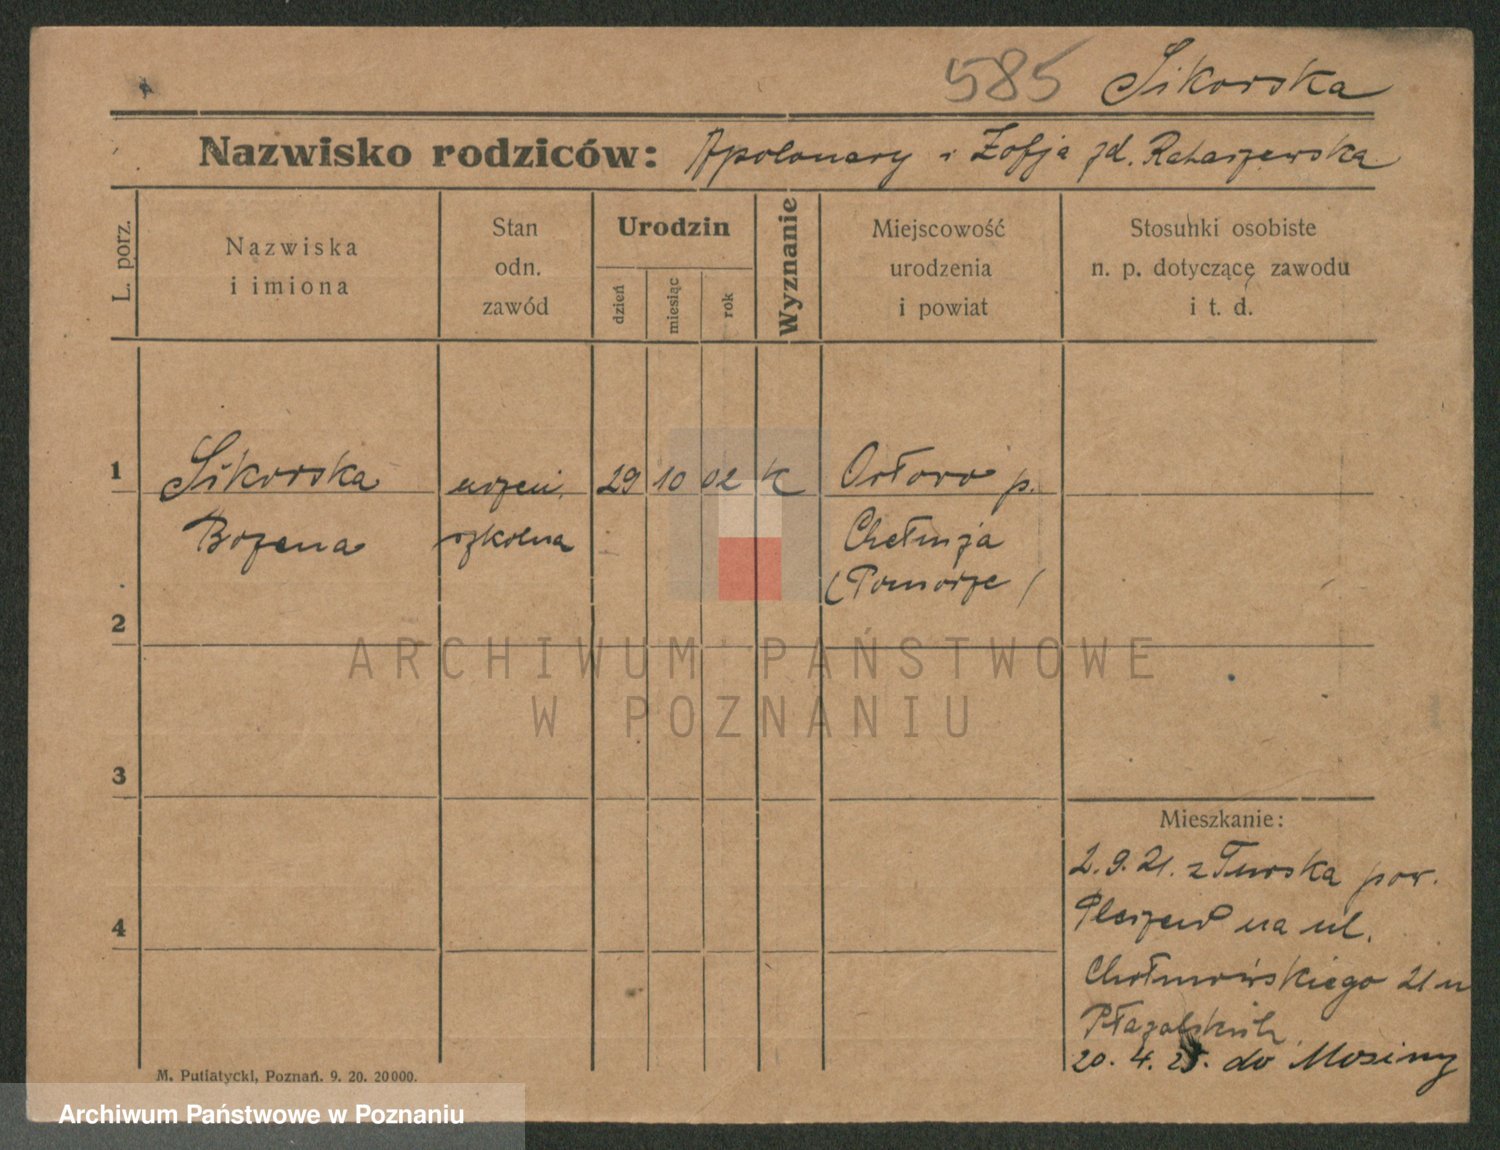 585 Sikorska
Nazwisko rodziców: Apolonary i Zofja zd. Rataszewska
L. porz.
Nazwiska
i imiona
Stan
odn.
zawód
Urodzin
dzień
miesiąc
rok
Wyznanie
Miejscowość
urodzenia
i powiat
Stosunki osobiste
n. p. dotyczące zawodu
i t. d.
1 Sikorska uczeni. 29 10 02 k Orłowo p.
Bożena szkolna Chełmża
(Pomorze)
2
ARCHIWUM PAŃSTWOWE
W POZNANIU
3
Mieszkanie:
2.9.21. z Turska pow.
4 Pleszew na ul.
21 u
20. 4. 25. do Mosiny
M. Putiatycki, Poznań. 9. 20. 20000.
Archiwum Państwowe w Poznaniu